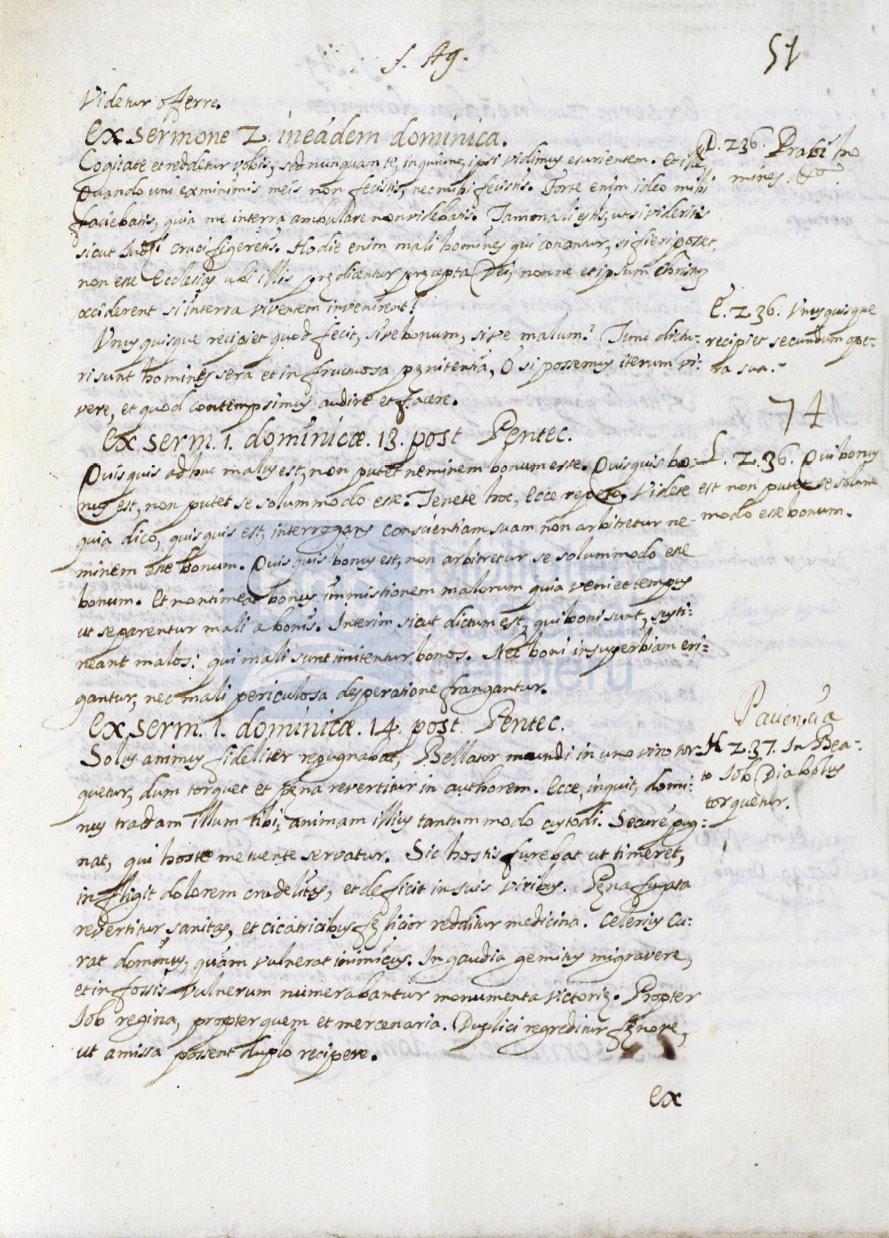 S. Ag.
51
Videtur offerre.
Ex sermone 2. in eádem dominica.
Cogitate et reddetur vobis, sed nunquam te, inquiunt, ipsi vidimus esurientem. Et ille
Quando uni ex minimis meis non fecistis, nec mihi fecistis. Forte enim ideo mihi
faciebatis, quia me in terra ambulare non videbatis. Tam mali estis, ut si videritis
sicut Judęi crucifigeretis. Hodie enim mali homines qui conantur, si fieri posset,
non esse Ecclesias ubi illis prędicentur pręcepta Dei, nonne et ipsum Christũ
occiderent si in terra viventem invenirent?
D. 236. Prabi ho
mines
Unusquisque recipiet quod fecit, sive bonum, sive malum? Tunc dictu-
ri sunt homines sera et infructuosa pęnitentiâ, O si possemus iterum vi-
vere, et quod contempsimus audire et facere.
E. 236. Unusquisque
recipiet secundum ope-
ra sua.
74
Ex serm. 1. dominicæ. 13. post Pentec.
Quisquis adhuc malus est, non putet neminem bonum esse. Quisquis bo-
nus est, non putet se solummodo esse. Tenete hoc, Ecce repeto, Videte
quia dico, quisquis est, interrogans conscientiam suam non arbitretur ne-
minem esse bonum. Quisquis bonus est, non arbitretur se solummodo esse
bonum. Et non timeat bonus immistionem malorum quia veniet tempus
ut separentur mali a bonis. Interim sicut dictum est, qui boni sunt, susti-
neant malos: qui mali sunt imitentur bonos. Nec boni in superbiam eri-
gantur, nec mali periculosa desperatione frangantur.
L. 236. Qui bonus
est non putet se solum
modo esse bonum.
Ex serm. 1. dominicæ. 14. post Pentec.
Solus animus fideliter repugnabat, Bellator mundi in uno viro tor-
quetur, dum torquet et pęna revertitur in authorem. Ecce, inquit, domi-
nus tradam illum tibi, animam illius tantummodo custodi. Securé pug-
nat, qui hoste metuente servatur. Sic hostis furebat ut timeret,
infligit dolorem crudelitas, et deficit in suis viribus. Pęna fugata
revertitur sanitas, et cicatricibus fęlicior redditur medicina. Celerius cu-
rat dominus, quám vulnerat inimicus. In gaudia gemitus migravere,
et in fossis vulnerum numerabantur monumenta victorię. Propter
Iob regina, propter quem et mercenaria. Duplici regreditur fęnore,
ut amissa possent duplo recipere.
H. 237. In Bea-
to Iob Diabolus
torquetur.
Ex
biblioteca
nacional
del perú